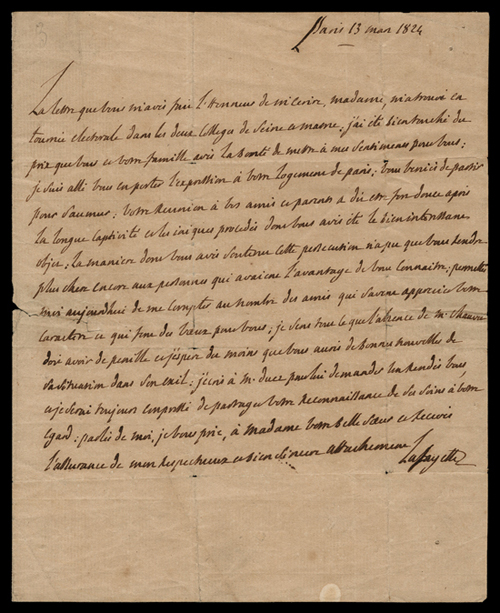 Paris 13 mars 1824
La lettre que vous m'avés fait l'honneur de m'ecrire, madame, m'a trouvé en
tournée electorale dans les deux Colleges de Seine et marne; j'ai été bien touché du
prix que vous et votre famille avés la bonté de mettre à mes sentimens pour vous;
je suis allé vous en porter l'expression à votre logement de paris; vous veniés de partir
pour Saumur; votre Reunion à vos amis et parents a dû etre fort douce après
la longue captivité et les iniques procedés dont vous avés été le bien interessant
objet; la maniere dont vous avés soutenu cette persecution n'a pu que vous rendre
plus chere encore aux personnes qui avaient l'avantage de vous connaitre; permettés
moi aujourdhui de me compter au nombre des amis qui savent apprecier votre
caractere et qui font des vœux pour vous; je sens tout ce que l'absence de Mr Chauvet
doit avoir de penible et j'espere du moins que vous aurés de bonnes nouvelles de
sa situation dans son exil: j'ecris à Mr duce pour lui demander les rendés vous,
et je serai toujours empressé de partager votre Reconnaissance de ses soins à votre
egard: parlés de moi, je vous prie, à Madame votre belle sœur et recevés
l'assurance de mon respectueux et bien sincere attachement
Lafayette